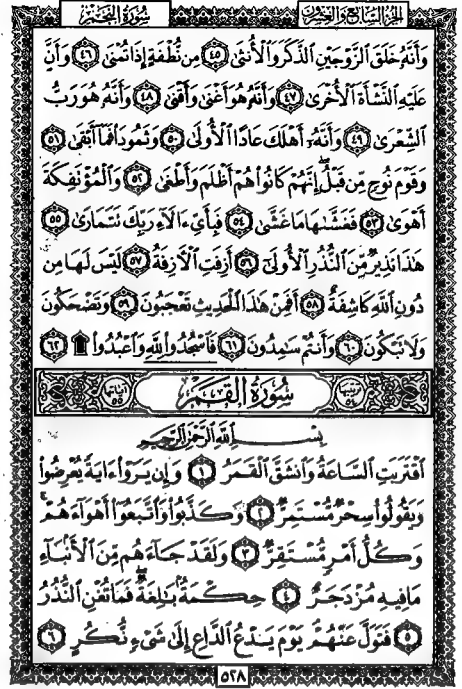 الجزء السابع والعشرون
سورة النجم
وَأَنَّهُۥ خَلَقَ ٱلزَّوْجَيْنِ ٱلذَّكَرَ وَٱلْأُنثَىٰ ٤٥ مِن نُّطْفَةٍ إِذَا تُمْنَىٰ ٤٦ وَأَنَّ
عَلَيْهِ ٱلنَّشْأَةَ ٱلْأُخْرَىٰ ٤٧ وَأَنَّهُۥ هُوَ أَغْنَىٰ وَأَقْنَىٰ ٤٨ وَأَنَّهُۥ هُوَ رَبُّ
ٱلشِّعْرَىٰ ٤٩ وَأَنَّهُۥٓ أَهْلَكَ عَادًا ٱلْأُولَىٰ ٥٠ وَثَمُودَا۟ فَمَآ أَبْقَىٰ ٥١
وَقَوْمَ نُوحٍ مِّن قَبْلُ ۖ إِنَّهُمْ كَانُوا۟ هُمْ أَظْلَمَ وَأَطْغَىٰ ٥٢ وَٱلْمُؤْتَفِكَةَ
أَهْوَىٰ ٥٣ فَغَشَّىٰهَا مَا غَشَّىٰ ٥٤ فَبِأَىِّ ءَالَآءِ رَبِّكَ تَتَمَارَىٰ ٥٥
هَٰذَا نَذِيرٌ مِّنَ ٱلنُّذُرِ ٱلْأُولَىٰٓ ٥٦ أَزِفَتِ ٱلْءَازِفَةُ ٥٧ لَيْسَ لَهَا مِن
دُونِ ٱللَّهِ كَاشِفَةٌ ٥٨ أَفَمِنْ هَٰذَا ٱلْحَدِيثِ تَعْجَبُونَ ٥٩ وَتَضْحَكُونَ
وَلَا تَبْكُونَ ٦٠ وَأَنتُمْ سَٰمِدُونَ ٦١ فَٱسْجُدُوا۟ لِلَّهِ وَٱعْبُدُوا۟ ۩ ٦٢
ترتيبها ٥٤ سورة القمر آياتها ٥٥
بِسْمِ ٱللَّهِ ٱلرَّحْمَٰنِ ٱلرَّحِيمِ
ٱقْتَرَبَتِ ٱلسَّاعَةُ وَٱنشَقَّ ٱلْقَمَرُ ١ وَإِن يَرَوْا۟ ءَايَةً يُعْرِضُوا۟
وَيَقُولُوا۟ سِحْرٌ مُّسْتَمِرٌّ ٢ وَكَذَّبُوا۟ وَٱتَّبَعُوٓا۟ أَهْوَآءَهُمْ ۚ
وَكُلُّ أَمْرٍ مُّسْتَقِرٌّ ٣ وَلَقَدْ جَآءَهُم مِّنَ ٱلْأَنۢبَآءِ
مَا فِيهِ مُزْدَجَرٌ ٤ حِكْمَةٌۢ بَٰلِغَةٌ ۖ فَمَا تُغْنِ ٱلنُّذُرُ
٥ فَتَوَلَّ عَنْهُمْ ۘ يَوْمَ يَدْعُ ٱلدَّاعِ إِلَىٰ شَىْءٍ نُّكُرٍ ٦
٥٢٨